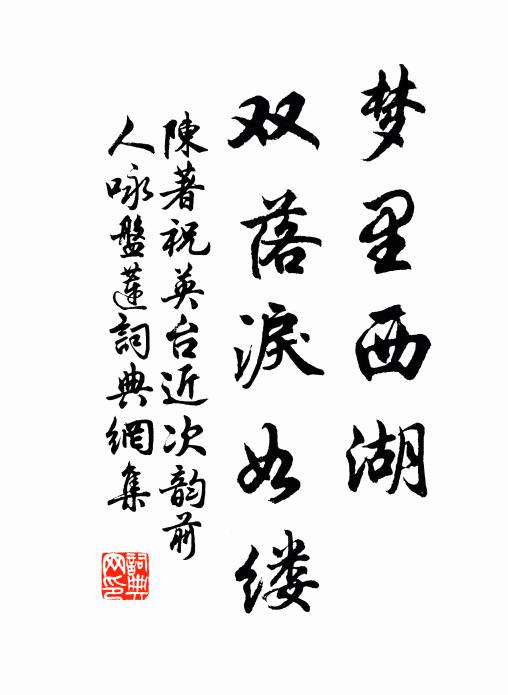 梦里西湖
双落淚如缕
陳著祝英台近次韵前
人咏盤蓮詞典網集
詞典网印